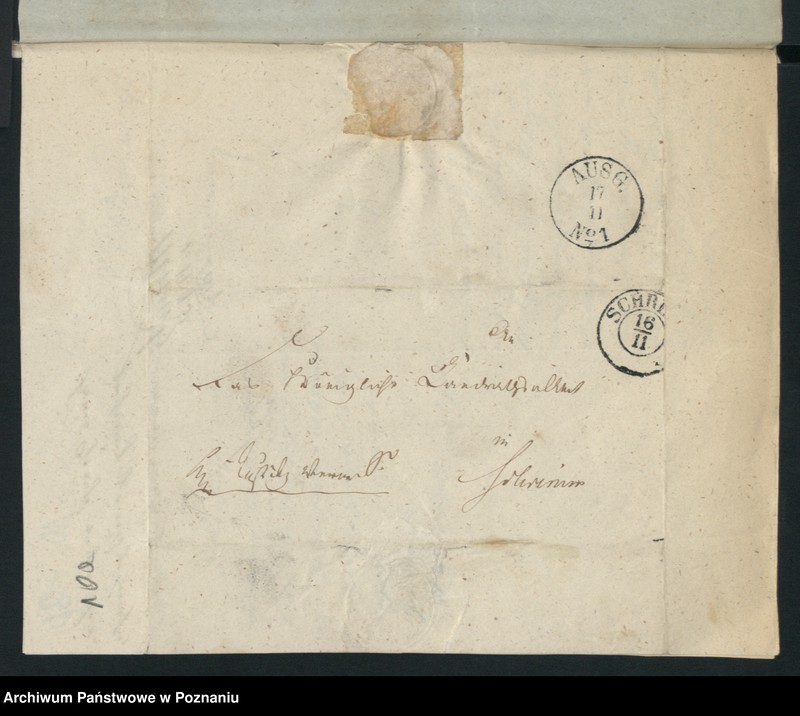 AUSG.
17
11
No 1
SCHRI
16
11
An
Das Königliche Landrathsamt
in
Schrimm
100
Archiwum Państwowe w Poznaniu